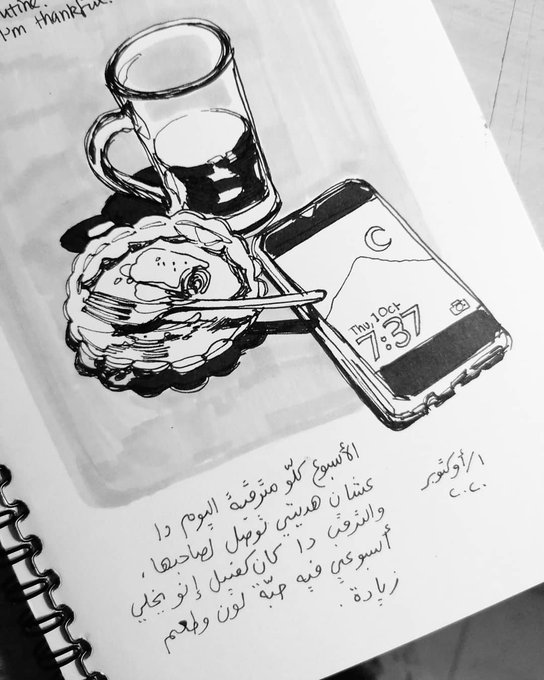 I'm thankful.
Thu, 1 Oct
7:37
الأسبوع كلّو مترقّبة اليوم دا
عشان هديتي توصل لصاحبها،
والترقّب دا كان كفيل إنو يخلي
أسبوعي فيه حبّة لون وطعم
زيادة.
١/أوكتوبر
٢٠٢٠